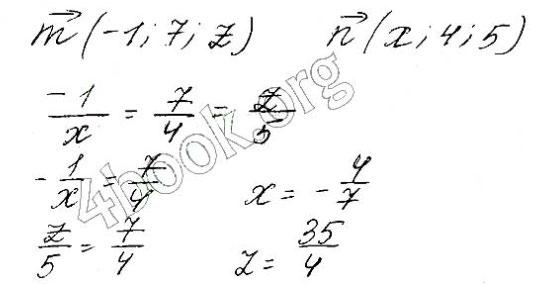 m⃗ (-1; 7; z) n⃗ (x; 4; 5)
-1/x = 7/4 = z/5
-1/x = 7/4 x = -4/7
z/5 = 7/4 z = 35/4
4book.org